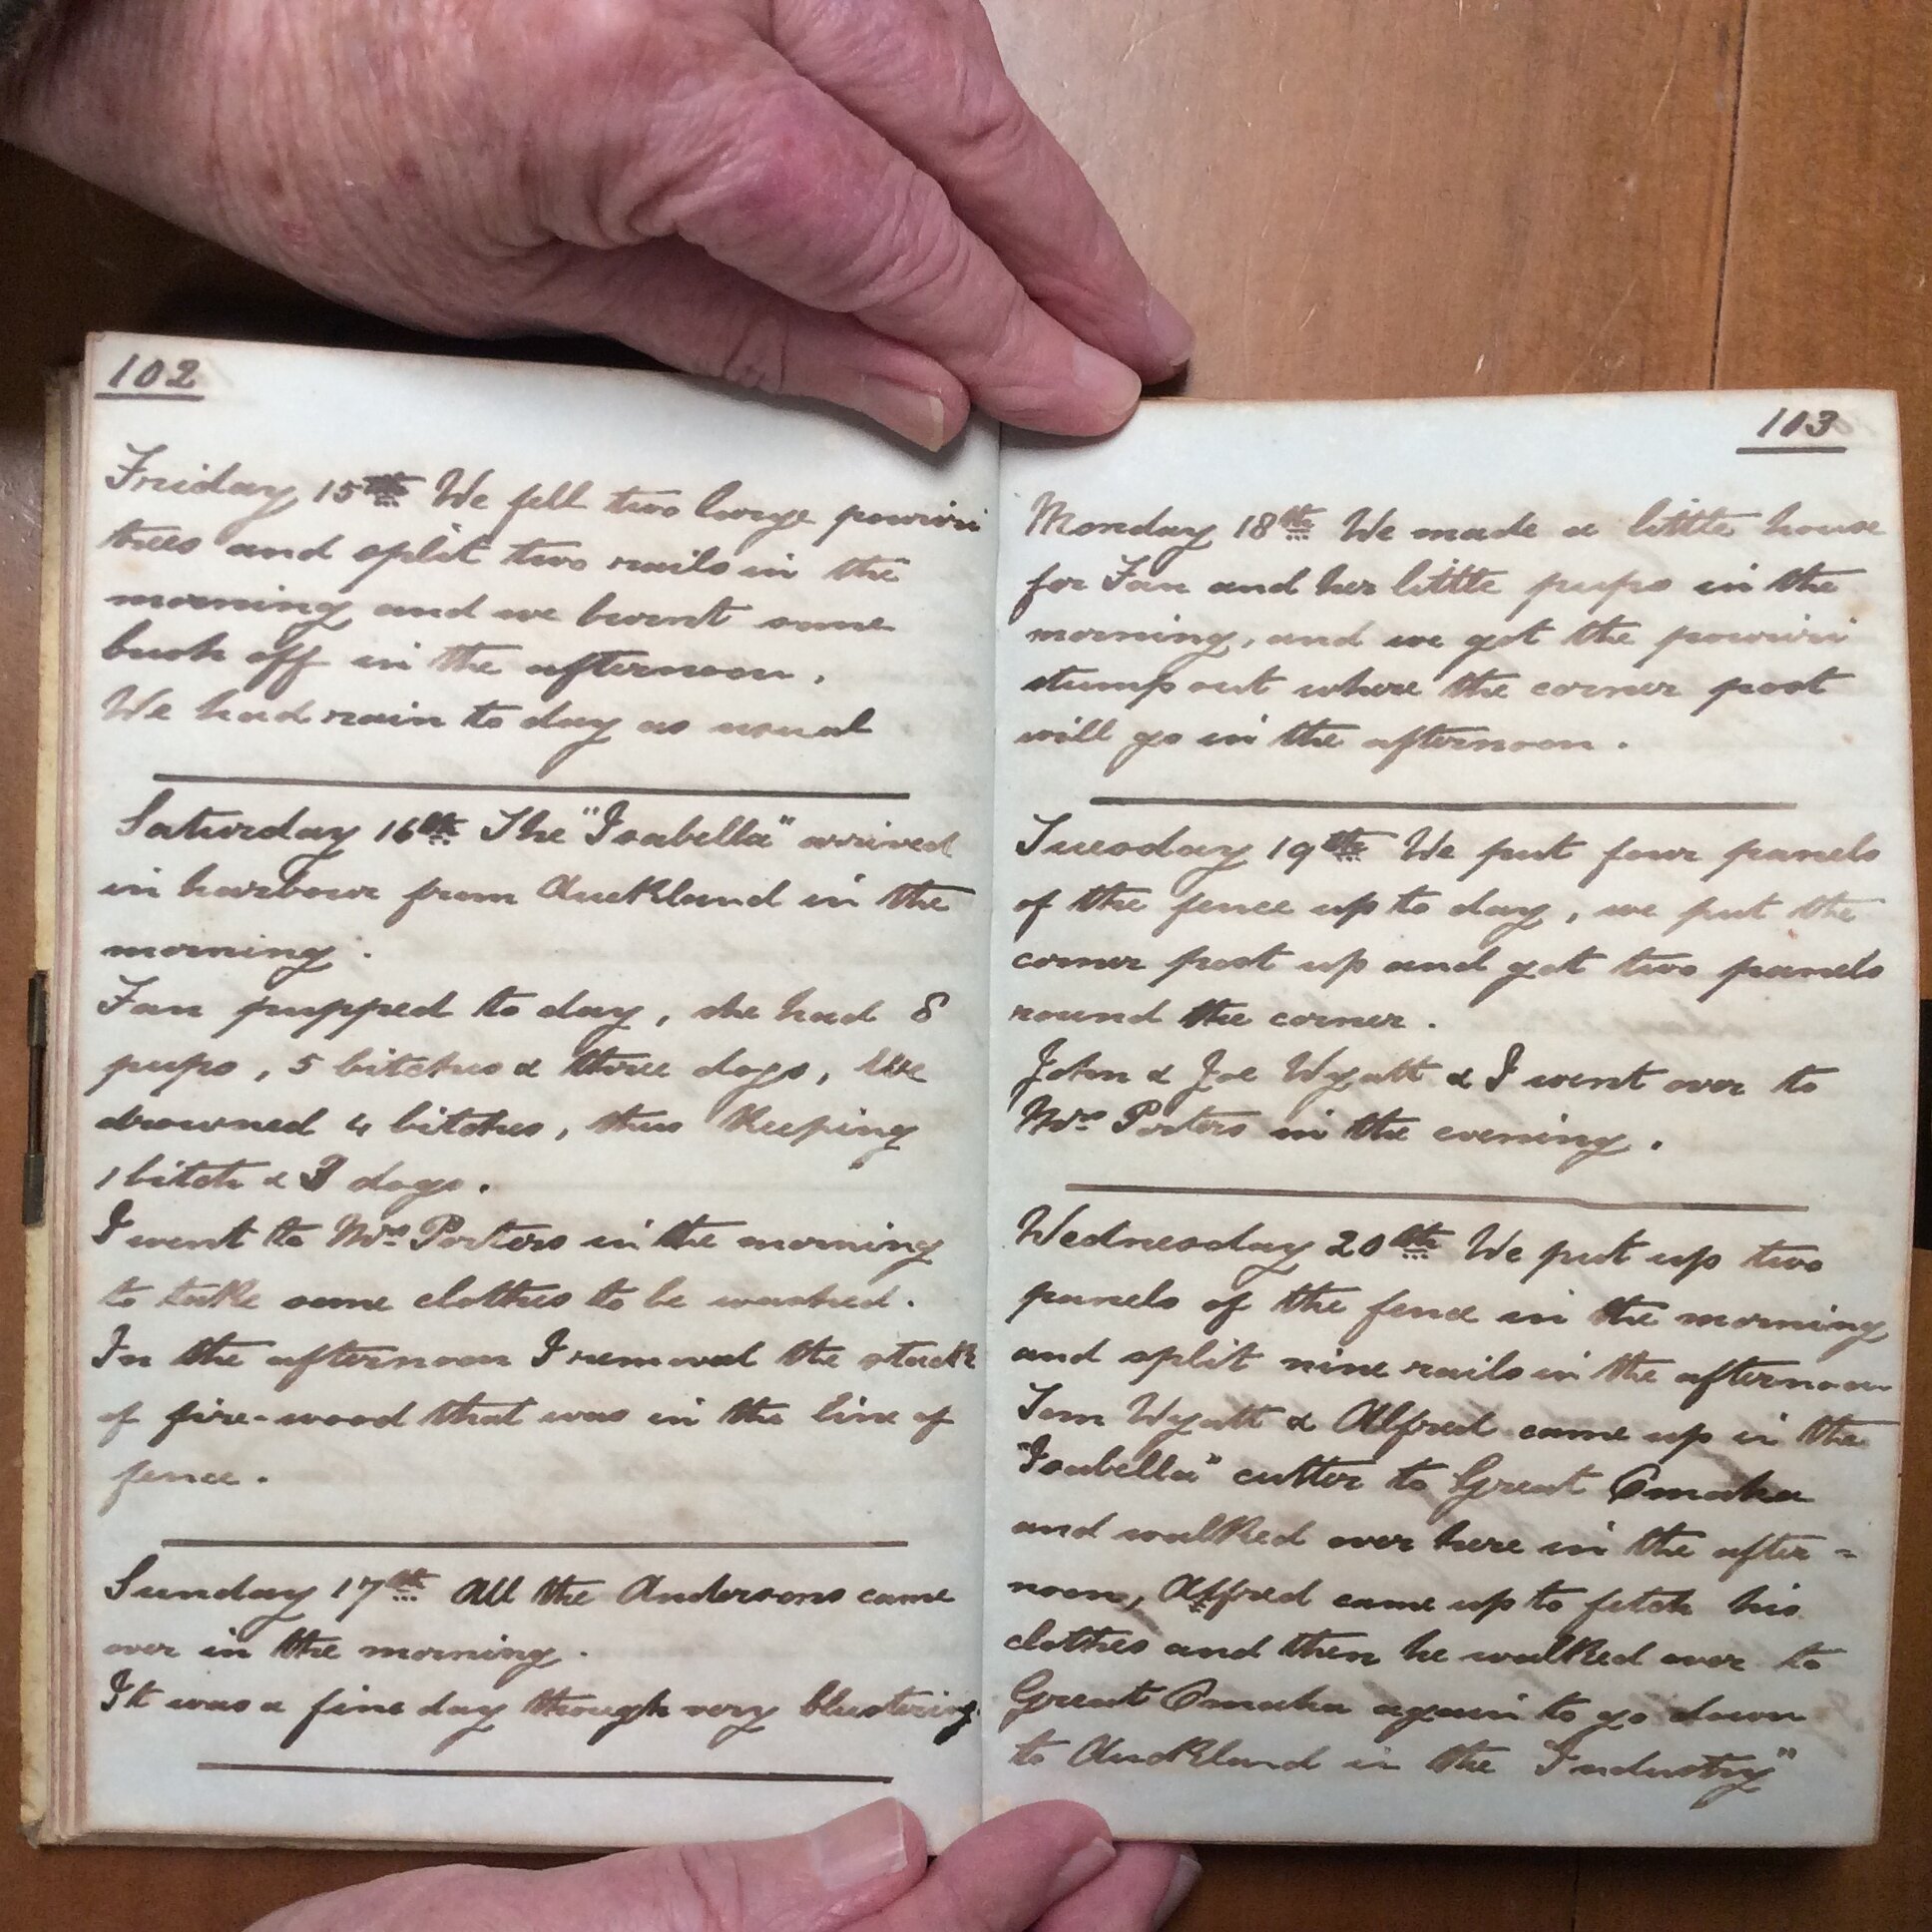 102
Friday 15th We fell two large powriri
trees and split two rails in the
morning and we burnt some
bush off in the afternoon.
We had rain to day as usual
Saturday 16th The "Isabella" arrived
in harbour from Auckland in the
morning.
Fan pupped to day, she had 8
pups, 5 bitches & three dogs, We
drowned 4 bitches, thus keeping
1 bitch & 3 dogs.
I went to Mrs Porters in the morning
to take some clothes to be washed.
In the afternoon I removed the stack
of fire-wood that was in the line of
fence.
Sunday 17th All the Andersons came
over in the morning.
It was a fine day though very blustering
103
Monday 18th We made a little house
for Fan and her little pups in the
morning, and we got the powriri
stump out where the corner post
will go in the afternoon.
Tuesday 19th We put four panels
of the fence up to day, we put the
corner post up and got two panels
round the corner.
John & Joe Wyatt & I went over to
Mrs Porters in the evening.
Wednesday 20th We put up two
panels of the fence in the morning
and split nine rails in the afternoon
Tom Wyatt & Alfred came up in the
"Isabella" cutter to Great Omaha
and walked over here in the after=
noon, Alfred came up to fetch his
clothes and then he walked over to
Great Omaha again to go down
to Auckland in the "Industry"